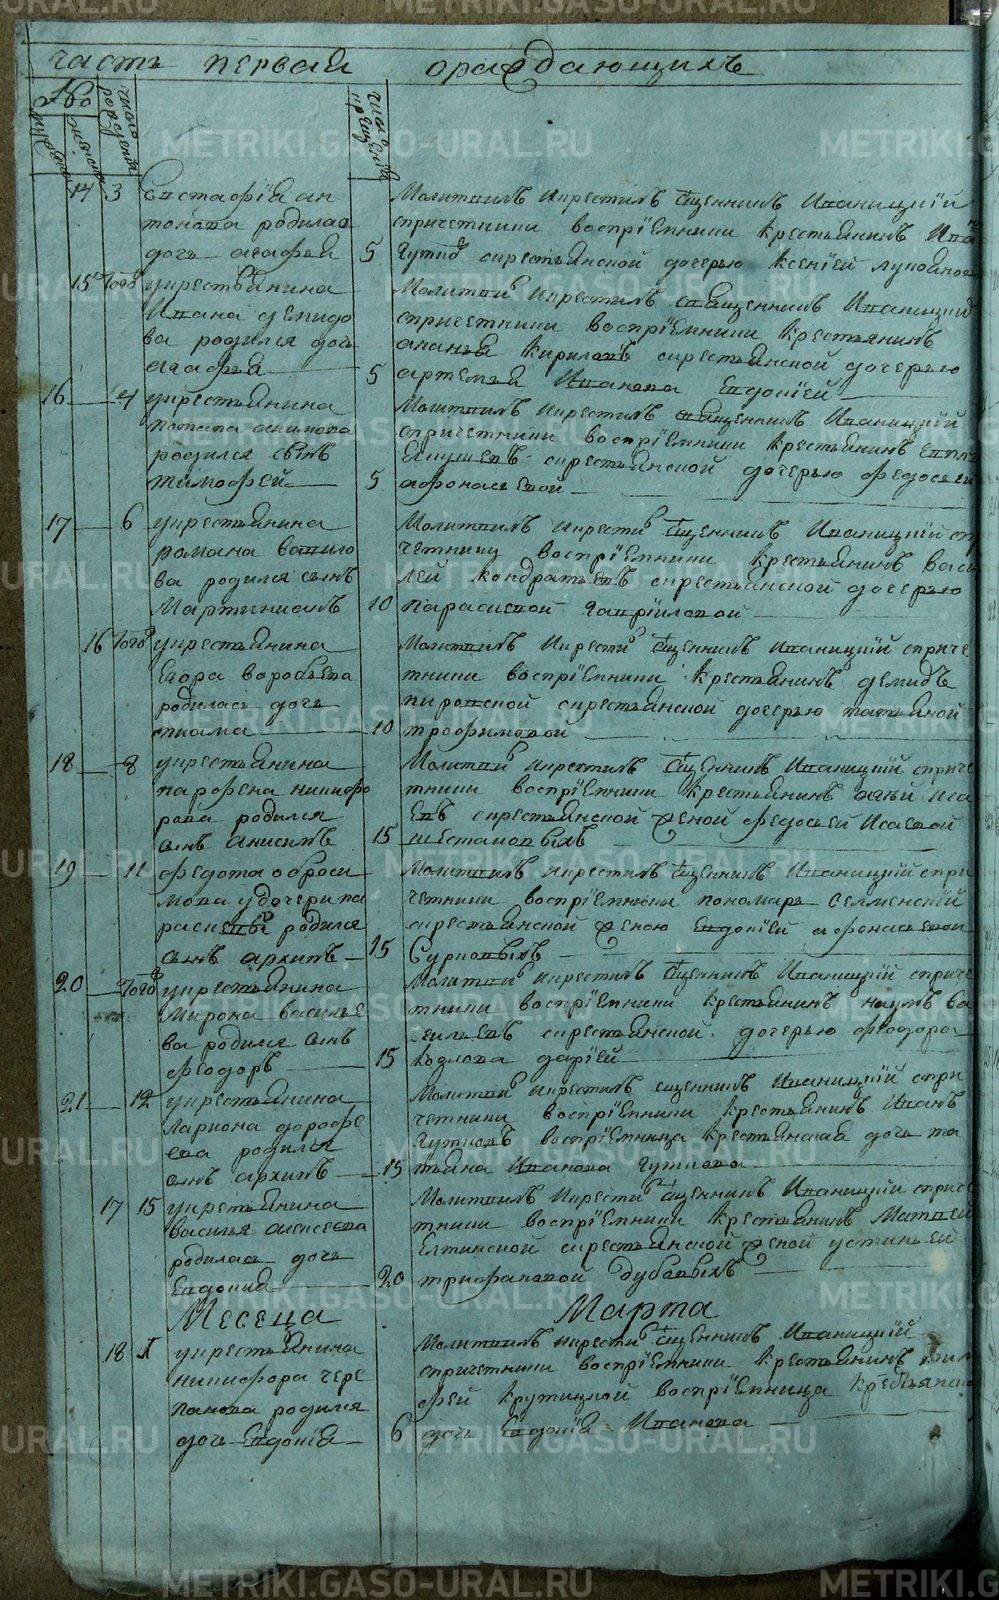 часть первая ораждающихъ
No
число рождения
число крещенїя
мужеска
женска
14 3 Евстафїя ан
тонова родилас
дочь агафья 5
Молитвилъ икрестилъ сщенникъ Иваницкїй
спричетники воспрїемники крестьянинъ Ива
Гутко скрестьянской дочерью Ксенїей
15 Того укрестьянина
Ивана демидо
ва родился дочь
агафья 5
Молитви икрестилъ священникъ Иваницкїй
спричетники воспрїемники крестьянинъ
ананья Кириловъ скрестьянской дочерью
артемья Иванова Евдокїей
16 4 укрестьянина
потапа акимова
родился сынъ
тимофей 5
Молитвилъ икрестилъ священникъ Иваницкїй
спричетники воспрїемники крестьянинъ
скрестьянской дочерью федосьей
афонасьевой
17 6 укрестьянина
романа вавило
ва родился сынъ
Мартинианъ 10
Молитвилъ икрести сщенникъ Иваницкїй сп
четники воспрїемники крестьянинъ васи
лей кондратьевъ скрестьянской дочерью
параскевой гаврїиловой
16 Того укрестьянина
Егора воробьева
родилась дочь
10
Молитвилъ икрести сщенникъ Иваницкїй сприче
тники воспрїемники крестьянинъ демидъ
скрестьянской дочерью татьяной
трофимовой
18 8 укрестьянина
парфена никифо
рова родился
сынъ Анисимъ 15
Молитви икрестилъ сщенникъ Иваницкїй сприче
тники воспрїемники крестьянинъ Иса
евъ скрестьянской женой федосьей Исаевой
шестаковыхъ
19 11 федота оброси
мова у дочери па
раскевы родился
сынъ архипъ 15
Молитвилъ икрестилъ сщенникъ Иваницкїй спри
четники воспрїемники пономарь селменскїй
скрестьянской женою Евдокїей афонасьевой
Сурновыхъ
20 Того укрестьянина
Мирона василье
ва родился сынъ
феодоръ 15
Молитви икрестилъ сщенникъ Иваницкїй сприче
тники воспрїемники крестьянинъ наумъ ва
сильевъ скрестьянской дочерью феодора
козлова дарїей
21 12 укрестьянина
Лариона дорофе
ева родился
сынъ архипъ 15
Молитви икрестилъ сщенникъ Иваницкїй спри
четники воспрїемники крестьянинъ Иванъ
Гутковъ воспрїемница крестьянская дочь та
тьяна Иванова Гуткова
17 15 укрестьянина
василья алексеева
родилась дочь
Евдокия 20
Молитвилъ икрести сщенникъ Иваницкїй сприче
тники воспрїемники крестьянинъ Матвей
Елтинской скрестьянской женой устиньей
трифановой Дубовыхъ
Месеца Марта
18 1 укрестьянина
никифора чере
панова родился
дочь Евдокїя 6
Молитвилъ икрести сщенникъ Иваницкїй
спричетники воспрїемники крестьянинъ тим
офей крутицкой воспрїемница крестьянска
дочь Евдокїя Иванова
METRIKI.GASO-URAL.RU